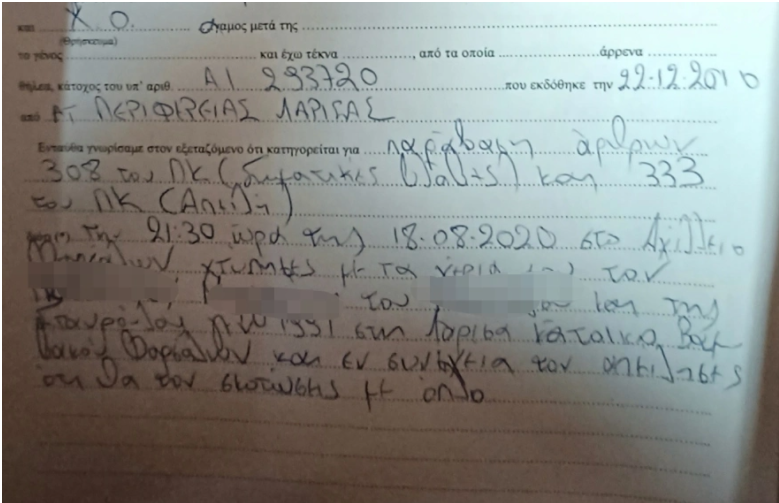 και Χ Ο. άγαμος μετά της
(Θρήσκευμα)
το γένος και έχω τέκνα , από τα οποία άρρενα
θήλεα, κάτοχος του υπ' αριθ. ΑΙ 293720 που εκδόθηκε την 22-12-2010
από ΑΤ ΠΕΡΙΦΕΡΕΙΑΣ ΛΑΡΙΣΑΣ
Ενταύθα γνωρίσαμε στον εξεταζόμενο ότι κατηγορείται για παράβαση άρθρων
308 του ΠΚ (Σωματικές βλάβες) και 333
του ΠΚ (Απειλή)
την 21:30 ώρα της 18-08-2020 στο Αχίλλειο
χτύπησες με τα χέρια τον
του και της
Σταυρούλας 1991 στη Λάρισα κάτοικο
Φαρσάλων και εν συνεχεία τον απείλησες
ότι θα τον σκοτώσης με όπλο